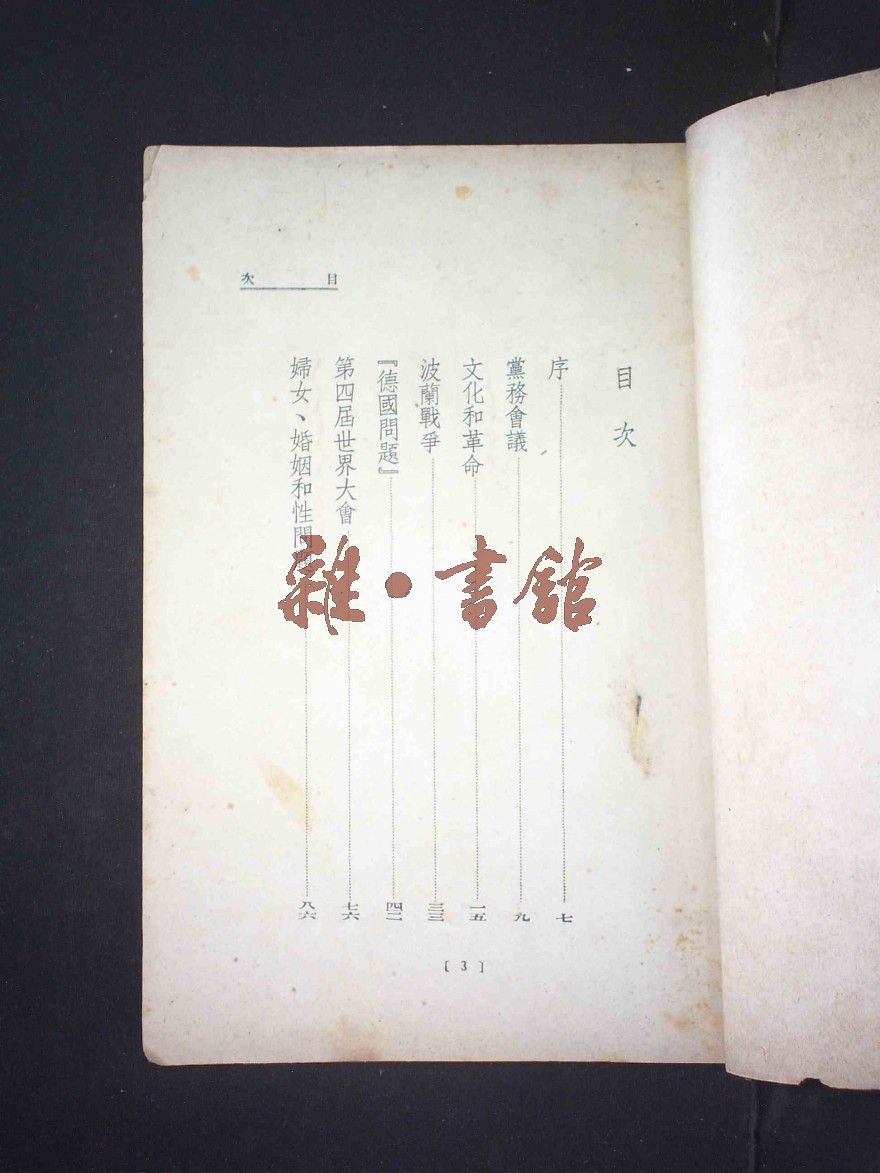 目次
目次
序 七
黨務會議 九
文化和革命 一五
波蘭戰爭 三三
『德國問題』 四二
第四屆世界大會 七六
婦女、婚姻和性問 八六
[3]
雜·書館